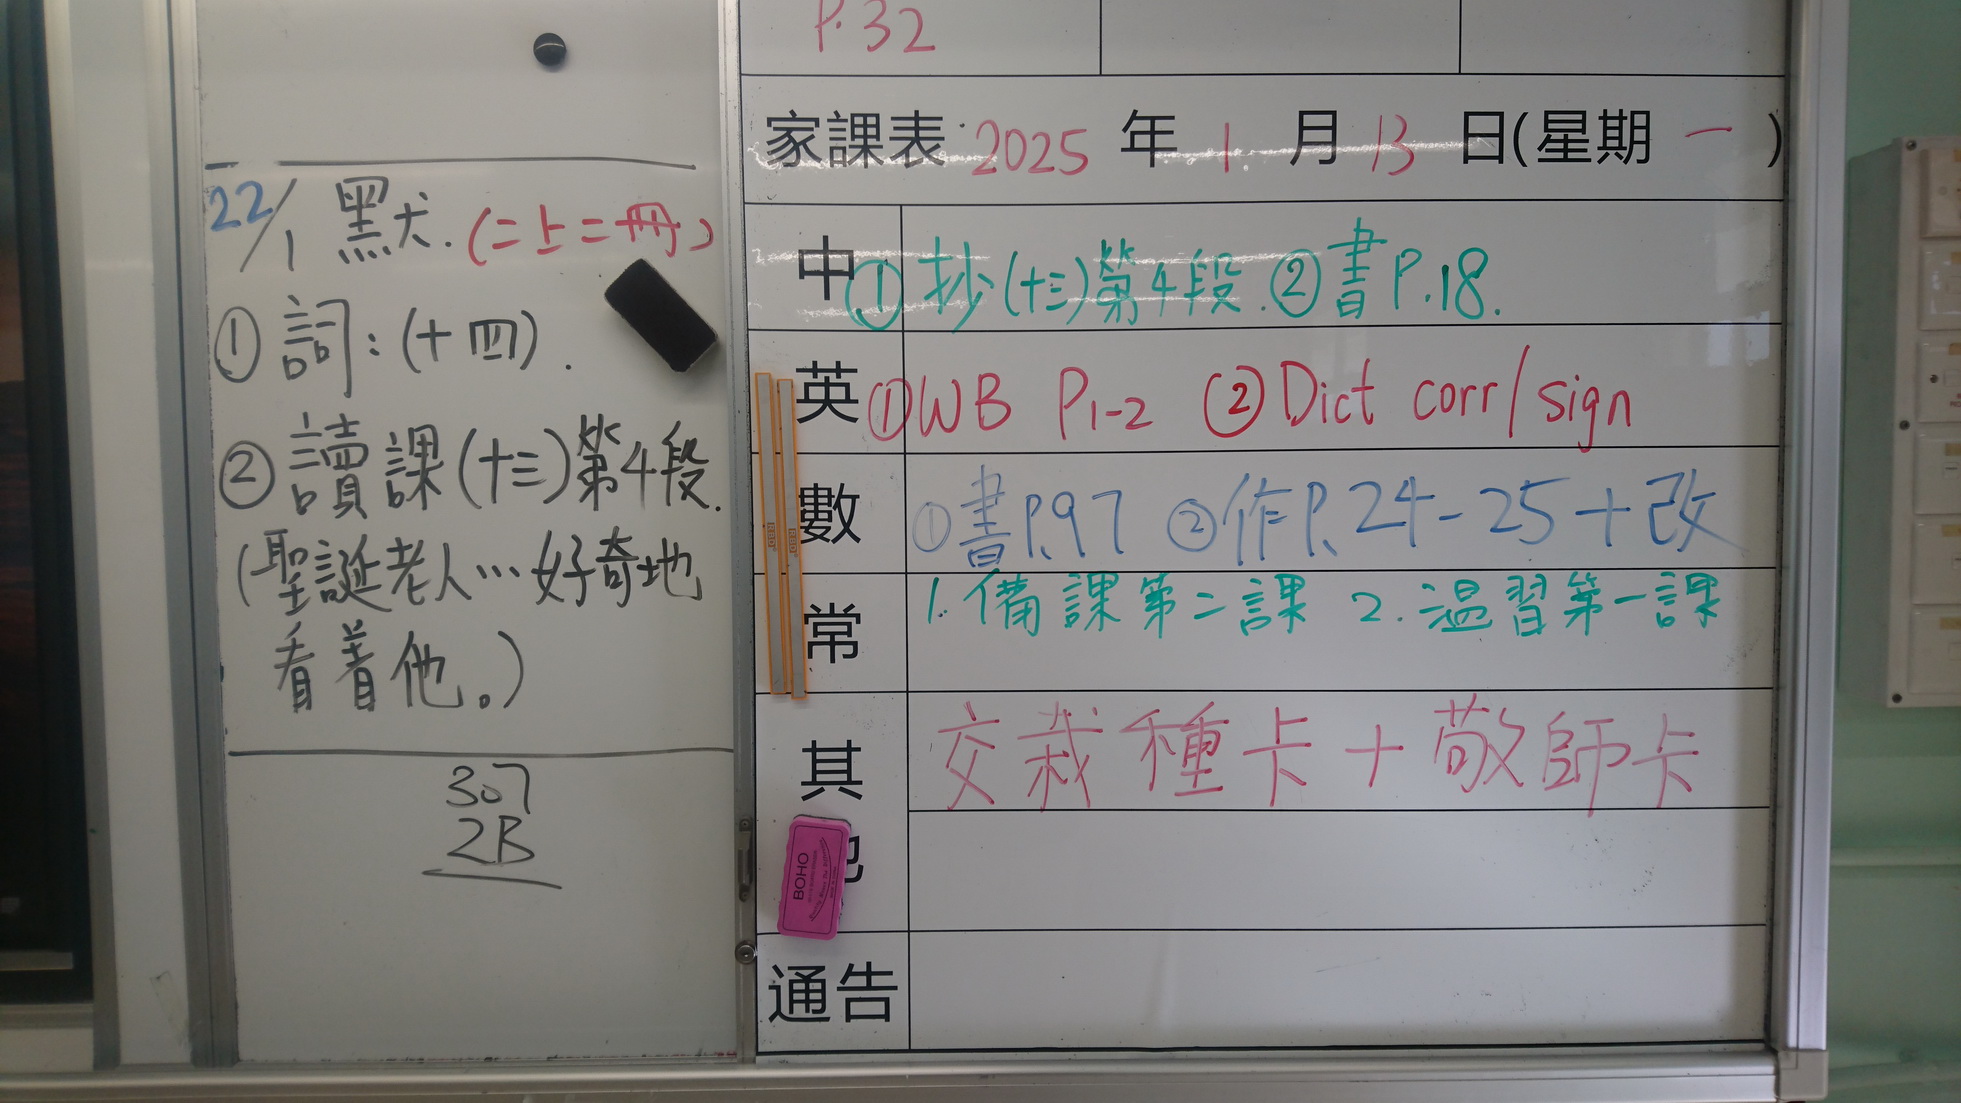 22/1 默犬.(二上二冊)
① 詞:(十四).
② 讀課(十三)第4段.
(聖誕老人…好奇地
看着他。)
307
2B
P.32
家課表 2025 年 1 月 13 日(星期 一 )
中 ① 抄(十三)第4段. ② 書P.18.
英 ① WB P1-2 ② Dict corr/sign
數 ① 書P.97 ② 作P.24-25+改
常 1. 備課第二課 2. 温習第一課
其 交栽種卡+敬師卡
BOHO
通告